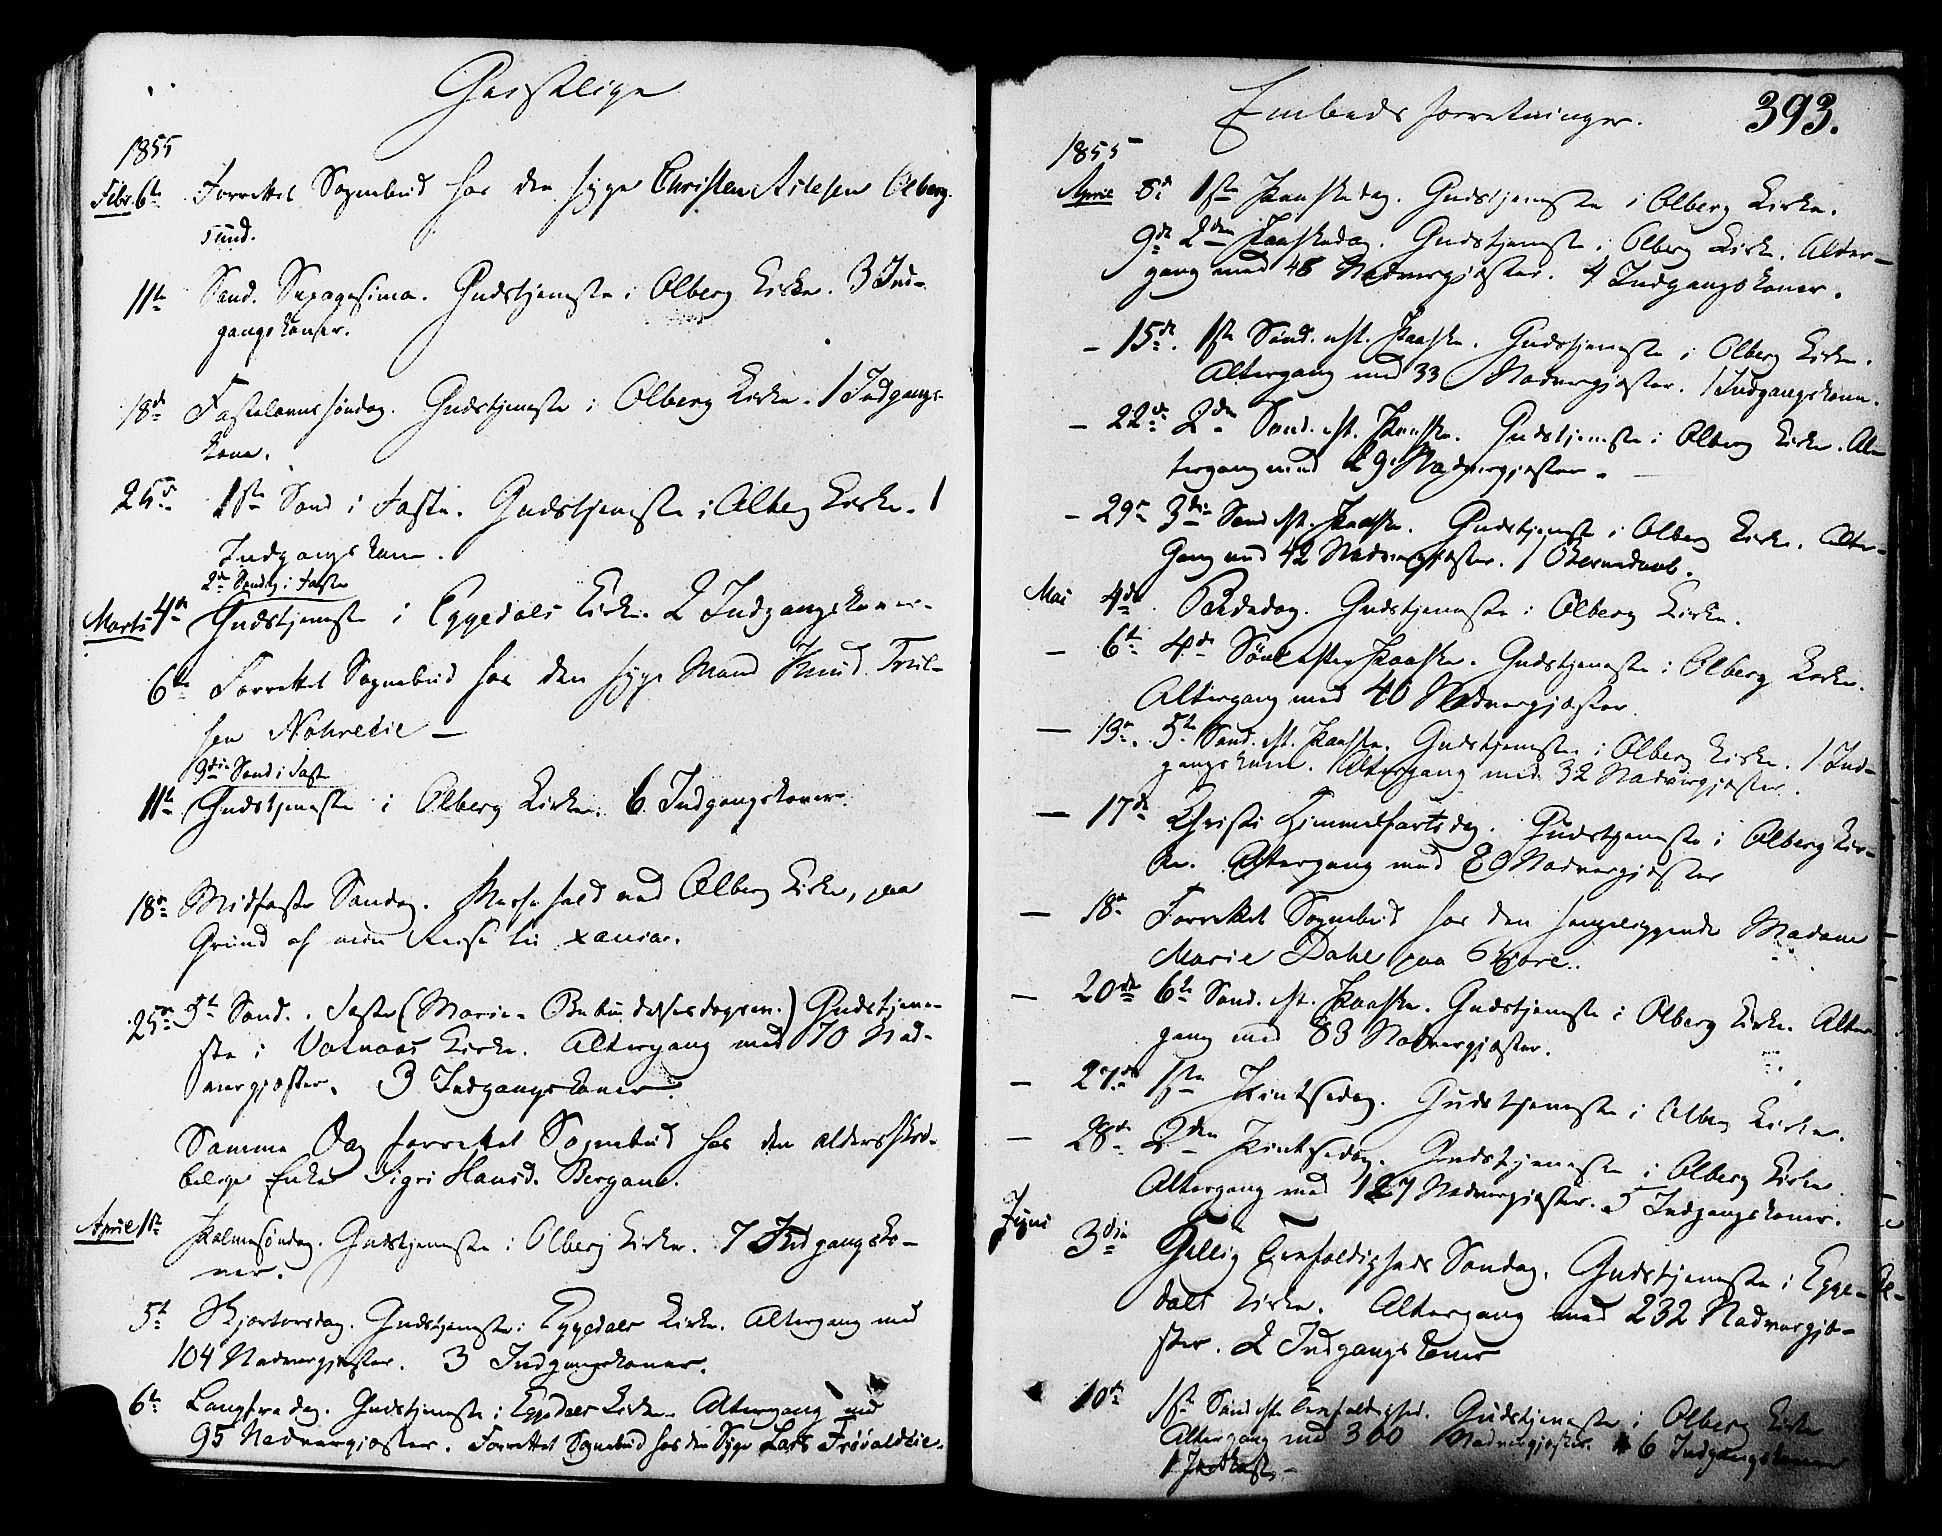 Geistlige
1855
Febr. 6te Forrettet Sognebud hos den syge Christen Aslesen Olberg-
sund.
11te Sønd. Sexagesima. Gudstjeneste i Olberg Kirke. 3 Ind-
gangskoner.
18de Fastelavnssøndag. Gudstjeneste i Olberg Kirke. 1 Indgangs-
kone.
25de 1ste Sønd i Faste. Gudstjeneste i Olberg Kirke. 1
Indgangskone.
2den Søndag i Faste
Marts 4de Gudstjeneste i Eggedals Kirke. 2 Indgangskoner.
6te Forrettet Sognebud hos den syge Mand Knud Trul-
sen
3die Sønd i Faste
11te Gudstjeneste i Olberg Kirke. 6 Indgangskoner.
18de Midfaste Søndag. Messefald ved Olberg Kirke, paa
Grund af min Reise til Xania.
25de 5te Sønd. i Faste (Mariæ Bebudelsesdag) Gudstjene-
ste i Vatnaas Kirke. Altergang med 70 Nad-
vergjæster. 3 Indgangskoner.
Samme Dag forrettet Sognebud hos den aldersskrø-
belige Enke Sigri Hansd. Bergan.
April 1ste Palmesøndag. Gudstjeneste i Olberg Kirke. 7 Indgangsko-
ner.
5te Skjærtorsdag. Gudstjeneste i Eggedals Kirke. Altergang med
104 Nadvergjæster. 3 Indgangskoner.
6te Langfredag. Gudstjeneste i Eggedals Kirke. Altergang med
95 Nadvergjæster. Forrettet Sognebud hos den syge Lars
Embedsforretninger. 393.
1855
April 8de 1ste Paaskedag. Gudstjeneste i Olberg Kirke.
9de 2den Paaskedag. Gudstjeneste i Olberg Kirke. Alter-
gang med 48 Nadvergjæster. 4 Indgangskoner.
- 15de. 1ste Sønd. eft. Paaske. Gudstjeneste i Olberg Kirke.
Altergang med 33 Nadvergjæster. 1 Indgangskone.
- 22de 2den Sønd. eft. Paaske. Gudstjeneste i Olberg Kirke. Al-
tergang med 29 Nadvergjæster.
- 29de 3die Sønd. eft. Paaske. Gudstjeneste i Olberg Kirke. Alter-
gang med 42 Nadvergjæster. 1
Mai 4de Bededag. Gudstjeneste i Olberg Kirke.
- 6te 4de Sønd. efter Paaske. Gudstjeneste i Olberg Kirke.
Altergang med 40 Nadvergjæster.
- 13de. 5te Sønd. eft. Paaske. Gudstjeneste i Olberg Kirke. 1 Ind-
gangskone. Altergang med 32 Nadvergjæster.
- 17de Christi Himmelfartsdag. Gudstjeneste i Olberg Kir-
ke. Altergang med Nadvergjæster
- 18de Forrettet Sognebud hos den sengeliggende Madame
Marie Dahl paa
- 20de 6te Sønd. eft. Paaske. Gudstjeneste i Olberg Kirke. Alter-
gang med 83 Nadvergjæster.
- 27de 1ste Pintsedag. Gudstjeneste i Olberg Kirke.
- 28de 2den Pintsedag. Gudstjeneste i Olberg Kirke.
Altergang med 127 Nadvergjæster. 5 Indgangskoner.
Juni 3die Hellig Trefoldigheds Søndag. Gudstjeneste i Egge-
dals Kirke. Altergang med 232 Nadvergjæ-
ster. 2 Indgangskoner
10de 1ste Sønd efter Trefoldighed. Gudstjeneste i Olberg Kirke
Altergang med 300 Nadvergjæster. 6 Indgangskoner